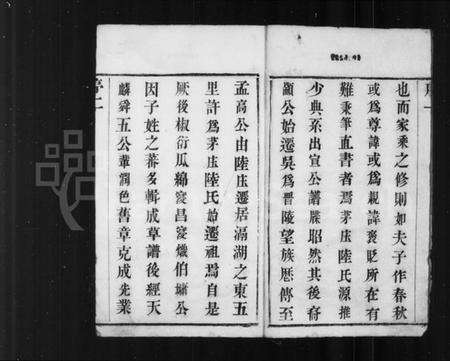 也而家乘之修則如夫子作春秋
或爲尊諱或爲親諱褒貶所在有
難秉筆直書者焉茅庄陸氏源推
少典系出宣公譜牒昭然其後裔
顯公始遷吳爲晋陵望族歷傳至
孟高公由陸庄遷居滆湖之東五
里許爲茅庄陸氏始遷祖焉自是
厥後椒衍瓜綿寖昌寖熾伯埔公
因子姓之蕃多輯成草譜後經天
麟舜五公輩潤色舊章克成先業
序二